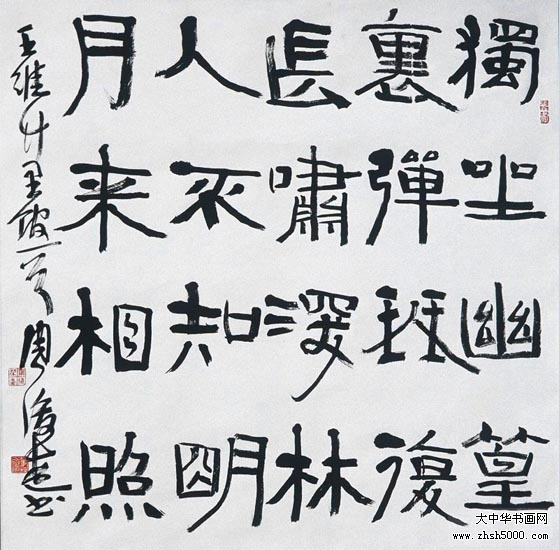 獨坐幽篁
裏彈琴復
長嘯深林
人不知明
月来相照
王維竹里館一首 周俊杰书
大中华书画网
www.zhsh5000.com